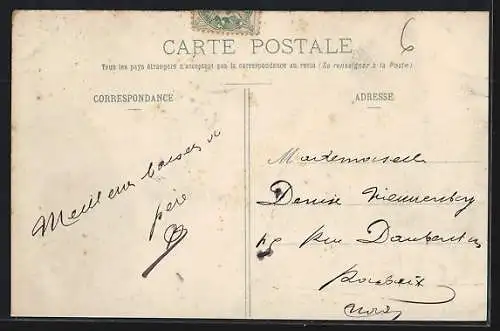 CARTE POSTALE
6
Tous les pays étrangers n'acceptent pas la correspondance au recto (Se renseigner à la Poste)
CORRESPONDANCE
ADRESSE
Meilleurs baisers
père
Mademoiselle
Denise
Rue Daubenton
Roubaix
Nord